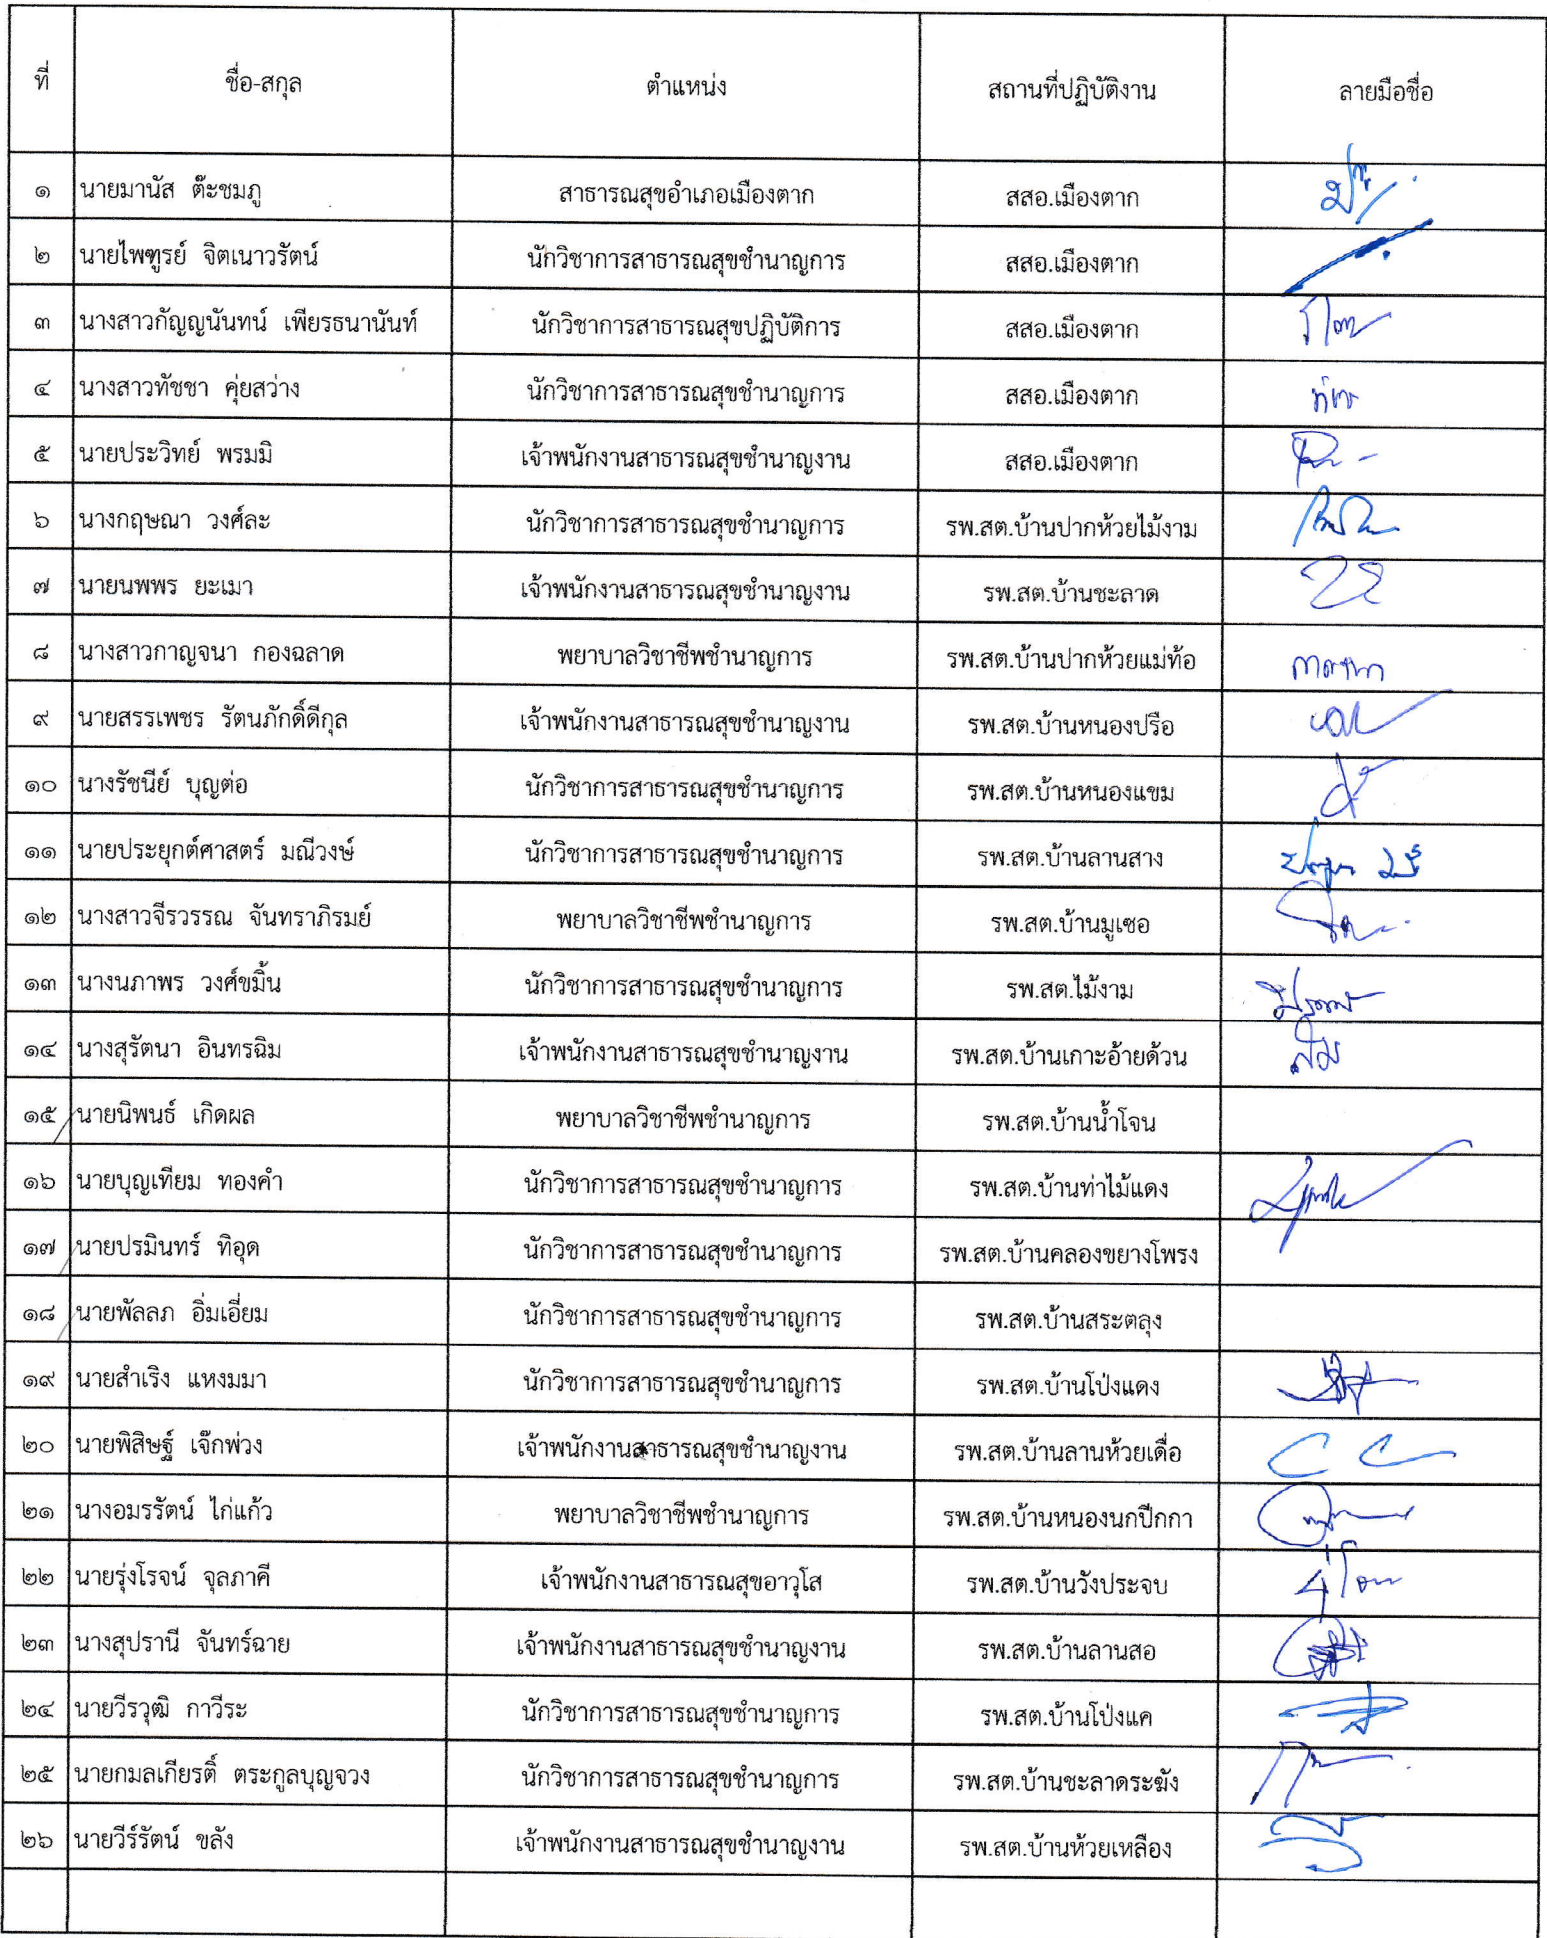 ที่ ชื่อ-สกุล ตำแหน่ง สถานที่ปฏิบัติงาน ลายมือชื่อ
๑ นายมานัส ต๊ะชมภู สาธารณสุขอำเภอเมืองตาก สสอ.เมืองตาก
๒ นายไพฑูรย์ จิตเนาวรัตน์ นักวิชาการสาธารณสุขชำนาญการ สสอ.เมืองตาก
๓ นางสาวกัญญนันทน์ เพียรธนานันท์ นักวิชาการสาธารณสุขปฏิบัติการ สสอ.เมืองตาก
๔ นางสาวทัชชา คุ่ยสว่าง นักวิชาการสาธารณสุขชำนาญการ สสอ.เมืองตาก
๕ นายประวิทย์ พรมมิ เจ้าพนักงานสาธารณสุขชำนาญงาน สสอ.เมืองตาก
๖ นางกฤษณา วงศ์ละ นักวิชาการสาธารณสุขชำนาญการ รพ.สต.บ้านปากห้วยไม้งาม
๗ นายนพพร ยะเมา เจ้าพนักงานสาธารณสุขชำนาญงาน รพ.สต.บ้านชะลาด
๘ นางสาวกาญจนา กองฉลาด พยาบาลวิชาชีพชำนาญการ รพ.สต.บ้านปากห้วยแม่ท้อ
๙ นายสรรเพชร รัตนภักดิ์ดีกุล เจ้าพนักงานสาธารณสุขชำนาญงาน รพ.สต.บ้านหนองปรือ
๑๐ นางรัชนีย์ บุญต่อ นักวิชาการสาธารณสุขชำนาญการ รพ.สต.บ้านหนองแขม
๑๑ นายประยุกต์ศาสตร์ มณีวงษ์ นักวิชาการสาธารณสุขชำนาญการ รพ.สต.บ้านลานสาง
๑๒ นางสาวจีรวรรณ จันทราภิรมย์ พยาบาลวิชาชีพชำนาญการ รพ.สต.บ้านมูเซอ
๑๓ นางนภาพร วงศ์ขมิ้น นักวิชาการสาธารณสุขชำนาญการ รพ.สต.ไม้งาม
๑๔ นางสุรัตนา อินทรฉิม เจ้าพนักงานสาธารณสุขชำนาญงาน รพ.สต.บ้านเกาะอ้ายด้วน
๑๕ นายนิพนธ์ เกิดผล พยาบาลวิชาชีพชำนาญการ รพ.สต.บ้านน้ำโจน
๑๖ นายบุญเทียม ทองคำ นักวิชาการสาธารณสุขชำนาญการ รพ.สต.บ้านท่าไม้แดง
๑๗ นายปรมินทร์ ทิอุด นักวิชาการสาธารณสุขชำนาญการ รพ.สต.บ้านคลองขยางโพรง
๑๘ นายพัลลภ อิ่มเอี่ยม นักวิชาการสาธารณสุขชำนาญการ รพ.สต.บ้านสระตลุง
๑๙ นายสำเริง แหงมมา นักวิชาการสาธารณสุขชำนาญการ รพ.สต.บ้านโป่งแดง
๒๐ นายพิสิษฐ์ เจ๊กพ่วง เจ้าพนักงานสาธารณสุขชำนาญงาน รพ.สต.บ้านลานห้วยเดื่อ
๒๑ นางอมรรัตน์ ไก่แก้ว พยาบาลวิชาชีพชำนาญการ รพ.สต.บ้านหนองนกปีกกา
๒๒ นายรุ่งโรจน์ จุลภาคี เจ้าพนักงานสาธารณสุขอาวุโส รพ.สต.บ้านวังประจบ
๒๓ นางสุปรานี จันทร์ฉาย เจ้าพนักงานสาธารณสุขชำนาญงาน รพ.สต.บ้านลานสอ
๒๔ นายวีรวุฒิ กาวีระ นักวิชาการสาธารณสุขชำนาญการ รพ.สต.บ้านโป่งแค
๒๕ นายกมลเกียรติ์ ตระกูลบุญจวง นักวิชาการสาธารณสุขชำนาญการ รพ.สต.บ้านชะลาดระฆัง
๒๖ นายวีร์รัตน์ ขลัง เจ้าพนักงานสาธารณสุขชำนาญงาน รพ.สต.บ้านห้วยเหลือง